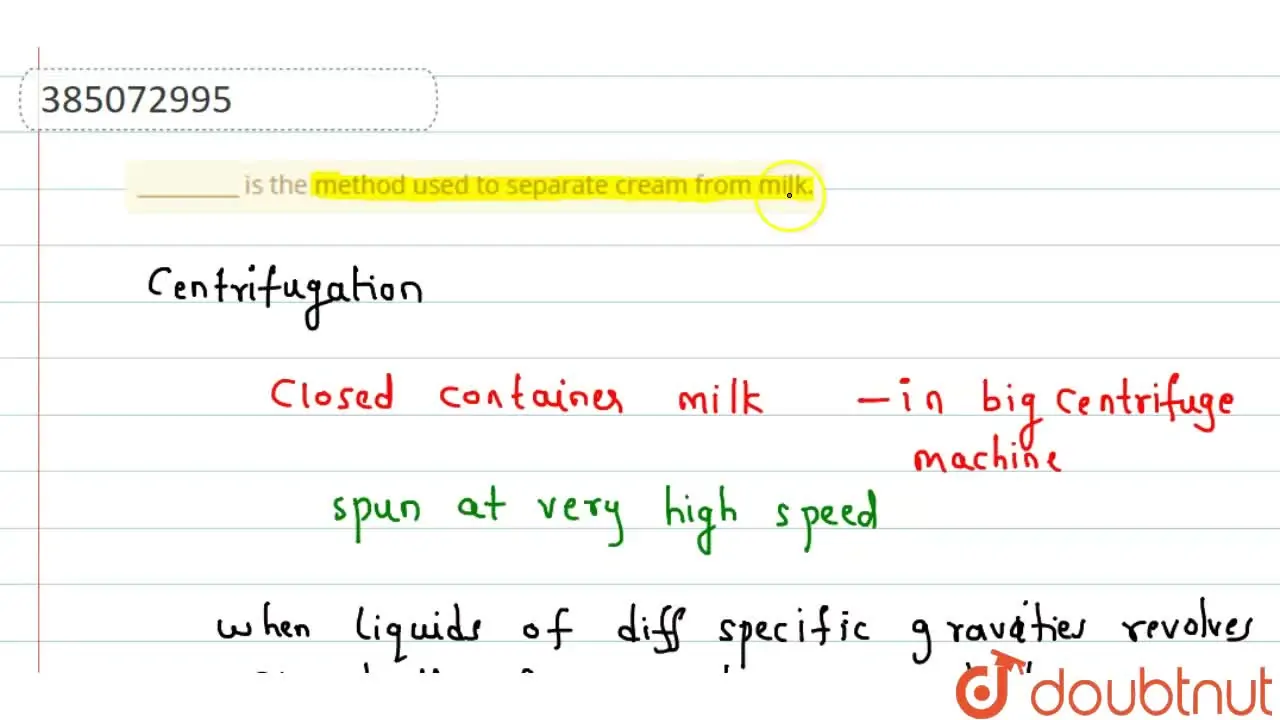 385072995
________ is the method used to separate cream from milk.
Centrifugation
Closed container milk – in big centrifuge
machine
spun at very high speed
when liquids of diff specific gravities revolves
doubtnut